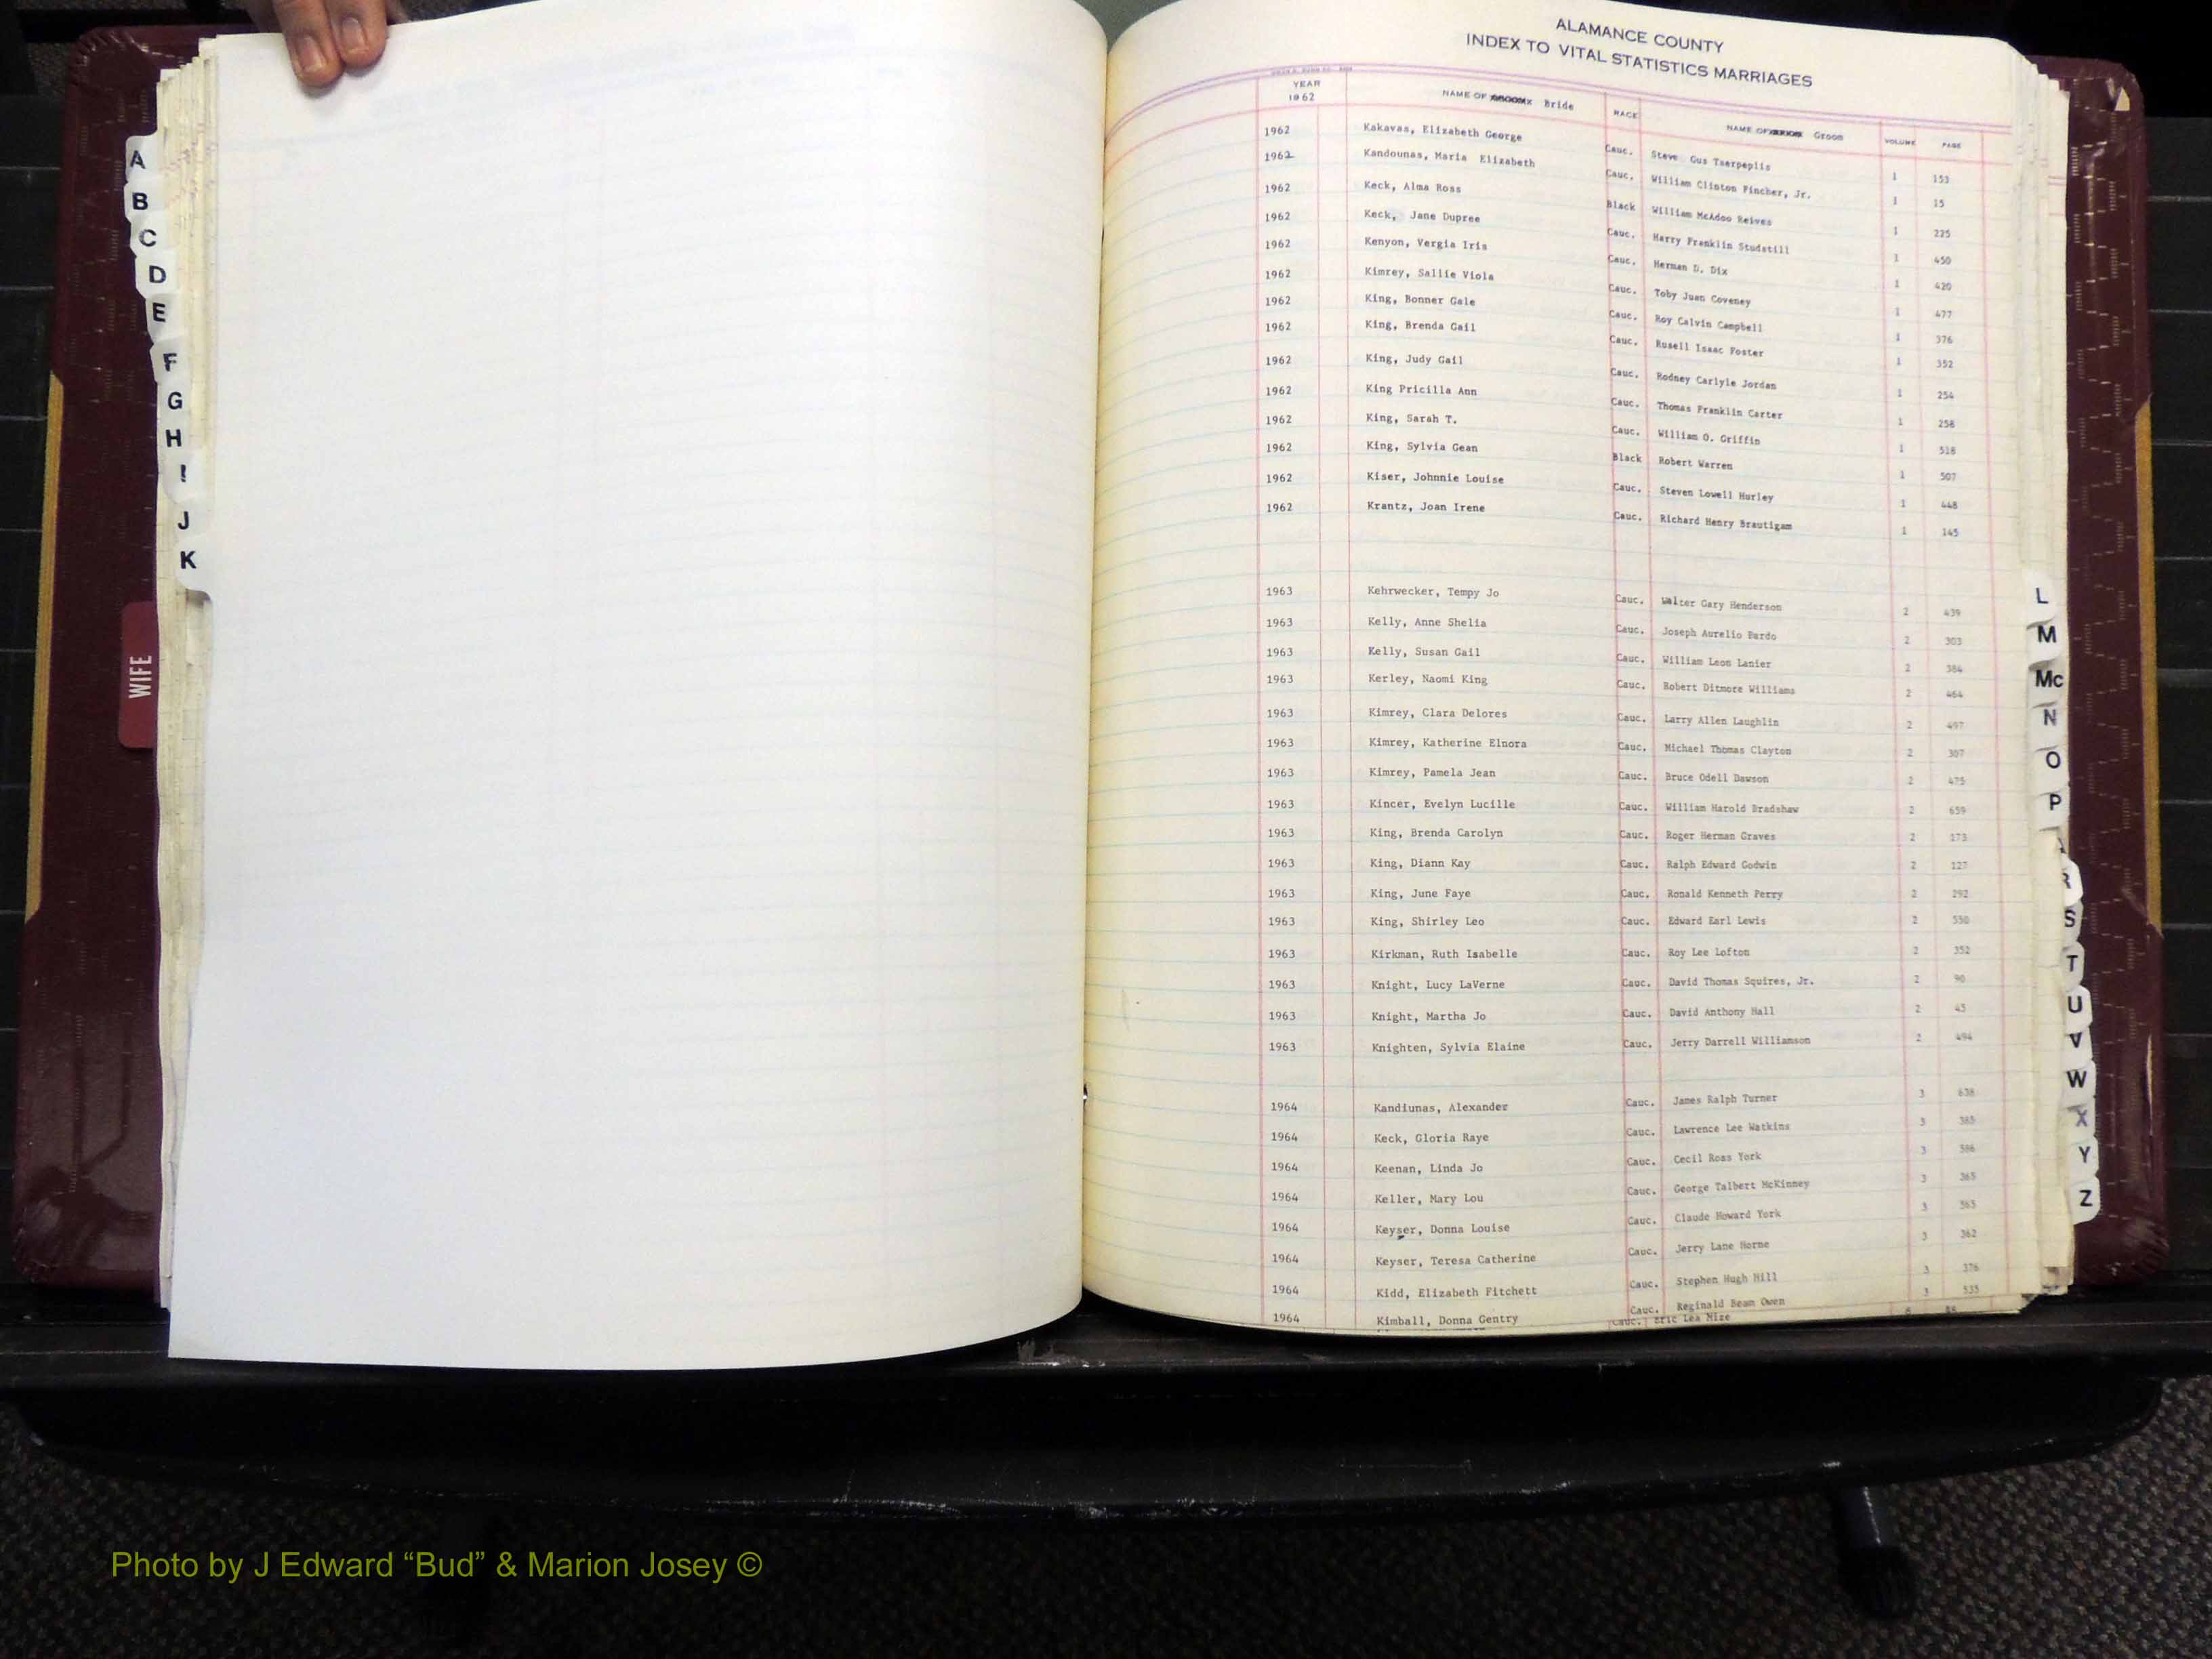 A
B
C
D
E
F
G
H
I
J
K
WIFE
ALAMANCE COUNTY
INDEX TO VITAL STATISTICS MARRIAGES
YEAR 1962 NAME OF Bride RACE NAME OF Groom VOLUME PAGE
1962 Kakavas, Elizabeth George Cauc. Steve Gus Tserpeplis 1 153
1962 Kandounas, Maria Elizabeth Cauc. William Clinton Pincher, Jr. 1 15
1962 Keck, Alma Ross Black William McAdoo Reives 1 225
1962 Keck, Jane Dupree Cauc. Harry Franklin Studstill 1 450
1962 Kenyon, Vergia Iris Cauc. Herman D. Dix 1 420
1962 Kimrey, Sallie Viola Cauc. Toby Juan Coveney 1 477
1962 King, Bonner Gale Cauc. Roy Calvin Campbell 1 376
1962 King, Brenda Gail Cauc. Rusell Isaac Foster 1 352
1962 King, Judy Gail Cauc. Rodney Carlyle Jordan 1 254
1962 King Pricilla Ann Cauc. Thomas Franklin Carter 1 258
1962 King, Sarah T. Cauc. William O. Griffin 1 518
1962 King, Sylvia Gean Black Robert Warren 1 507
1962 Kiser, Johnnie Louise Cauc. Steven Lowell Hurley 1 448
1962 Krantz, Joan Irene Cauc. Richard Henry Brautigam 1 145
1963 Kehrwecker, Tempy Jo Cauc. Walter Gary Henderson 2 439
1963 Kelly, Anne Shelia Cauc. Joseph Aurelio Burdo 2 303
1963 Kelly, Susan Gail Cauc. William Leon Lanier 2 384
1963 Kerley, Naomi King Cauc. Robert Ditmore Williams 2 464
1963 Kimrey, Clara Delores Cauc. Larry Allen Laughlin 2 497
1963 Kimrey, Katherine Elnora Cauc. Michael Thomas Clayton 2 307
1963 Kimrey, Pamela Jean Cauc. Bruce Odell Dawson 2 475
1963 Kincer, Evelyn Lucille Cauc. William Harold Bradshaw 2 659
1963 King, Brenda Carolyn Cauc. Roger Herman Graves 2 173
1963 King, Diann Kay Cauc. Ralph Edward Godwin 2 127
1963 King, June Faye Cauc. Ronald Kenneth Perry 2 292
1963 King, Shirley Leo Cauc. Edward Earl Lewis 2 550
1963 Kirkman, Ruth Isabelle Cauc. Roy Lee Lofton 2 352
1963 Knight, Lucy LaVerne Cauc. David Thomas Squires, Jr. 2 90
1963 Knight, Martha Jo Cauc. David Anthony Hall 2 43
1963 Knighten, Sylvia Elaine Cauc. Jerry Darrell Williamson 2 494
1964 Kandiunas, Alexander Cauc. James Ralph Turner 3 638
1964 Keck, Gloria Raye Cauc. Lawrence Lee Watkins 3 385
1964 Keenan, Linda Jo Cauc. Cecil Ross York 3 586
1964 Keller, Mary Lou Cauc. George Talbert McKinney 3 365
1964 Keyser, Donna Louise Cauc. Claude Howard York 3 565
1964 Keyser, Teresa Catherine Cauc. Jerry Lane Horne 3 362
1964 Kidd, Elizabeth Fitchett Cauc. Stephen Hugh Hill 3 376
1964 Kimball, Donna Gentry Cauc. Reginald Beam Owen 3 535
Cauc. Eric Lea Mize
L
M
Mc
N
O
P
R
S
T
U
V
W
X
Y
Z
Photo by J Edward “Bud” & Marion Josey ©